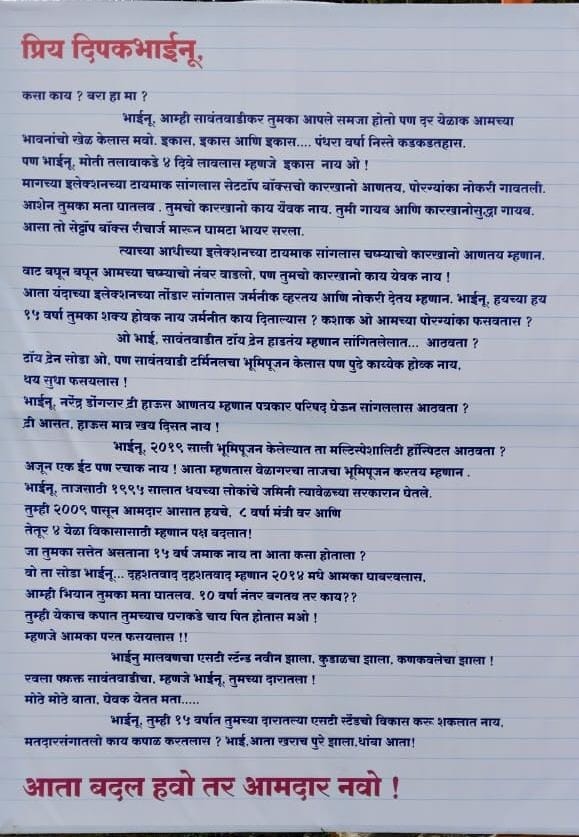 प्रिय दिपकभाईनू,
कसा काय ? बरा हा मा ?
भाईनू, आम्ही सावंतवाडीकर तुमका आपले समजा होतो पण दर येळाक आमच्या
भावनांचो खेळ केलास मवो. इकास, इकास आणि इकास.... पंधरा वर्षा निस्ते कडकडतहास.
पण भाईनू, मोती तलावाकडे ४ दिवे लावलास म्हणजे इकास नाय ओ !
मागच्या इलेक्शनच्या टायमाक सांगलास सेटटॉप बॉक्सचो कारखानो आणतय, पोरग्यांका नोकरी गावतली.
आशेन तुमका मता घातलव . तुमचो कारखानो काय येवक नाय. तुमी गायब आणि कारखानोसुद्धा गायब.
आसा तो सेट्टॉप बॉक्स रीचार्ज मारून घामटा भायर सरला.
त्याच्या आधीच्या इलेक्शनच्या टायमाक सांगलास चष्म्याचो कारखानो आणतय म्हणान.
वाट बघून बघून आमच्या चष्म्याचो नंबर वाढलो, पण तुमचो कारखानो काय येवक नाय !
आता यंदाच्या इलेक्शनच्या तोंडार सांगतास जर्मनीक व्हरतय आणि नोकरी देतय म्हणान. भाईनू, हयच्या हय
१५ वर्षा तुमका शक्य होवक नाय जर्मनीत काय दिताल्यास ? कशाक ओ आमच्या पोरग्यांका फसवतास ?
ओ भाई, सावंतवाडीत टॉय ट्रेन हाडतंय म्हणान सांगितलेलात... आठवता ?
टॉय ट्रेन सोडा ओ, पण सावंतवाडी टर्मिनलचा भूमिपूजन केलास पण पुढे काय्येक होव्क नाय,
थय सुधा फसयलास !
भाईनू, नरेंद्र डोंगरार ट्री हाऊस आणतय म्हणान पत्रकार परिषद घेऊन सांगललास आठवता ?
ट्री आसत, हाऊस मात्र खय दिसत नाय !
भाईनू, २०१९ साली भूमिपूजन केलेल्यात ता मल्टिस्पेशालिटी हॉस्पिटल आठवता ?
अजून एक ईट पण रचाक नाय ! आता म्हणतास वेळागरचा ताजचा भूमिपूजन करतय म्हणान .
भाईनू, ताजसाठी १९९५ सालात थयच्या लोकांचे जमिनी त्यावेळच्या सरकारान घेतले.
तुम्ही २००९ पासून आमदार आसात हयचे, ८ वर्षा मंत्री वर आणि
तेतूर ४ येळा विकासासाठी म्हणान पक्ष बदलात!
जा तुमका सत्तेत असताना १५ वर्ष जमाक नाय ता आता कसा होताला ?
वो ता सोडा भाईनू... दहशतवाद दहशतवाद म्हणान २०१४ मधे आमका घाबरवलास,
आम्ही भियान तुमका मता घातलव. १० वर्षा नंतर बगतव तर काय??
तुम्ही येकाच कपात तुमच्याच घराकडे चाय पित होतास मओ !
म्हणजे आमका परत फसयलास !!
भाईनु मालवणचा एसटी स्टॅन्ड नवीन झाला, कुडाळचा झाला, कणकवलेचा झाला !
रवला फक्त सावंतवाडीचा, म्हणजे भाईनू, तुमच्या दारातला !
मोठे मोठे बाता, घेवक येतत मता.....
भाईनू, तुम्ही १५ वर्षात तुमच्या दारातल्या एसटी स्टॅंडचो विकास करू शकलात नाय,
मतदारसंगातलो काय कपाळ करतलास ? भाई,आता खराच पुरे झाला,थांबा आता!
आता बदल हवो तर आमदार नवो !